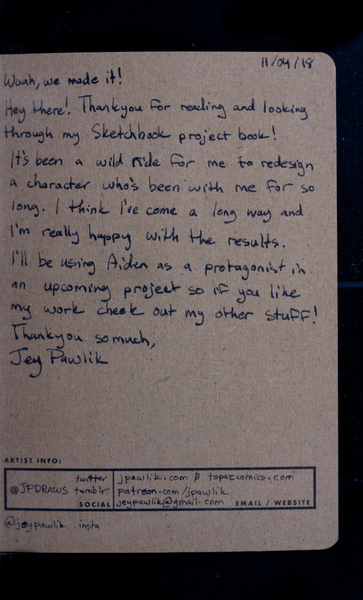 11/04/18
Woah, we made it!
Hey there! Thankyou for reading and looking
through my Sketchbook project book!
It's been a wild ride for me to redesign
a character who's been with me for so
long. I think I've come a long way and
I'm really happy with the results.
I'll be using Aiden as a protagonist in
an upcoming project so if you like
my work check out my other stuff!
Thankyou so much,
Jey Pawlik
ARTIST INFO:
@JPDRAWS twitter tumblr SOCIAL
jpawlik.com & topazcomics.com
patreon.com/jpawlik
jeypawlik@gmail.com EMAIL / WEBSITE
@jeypawlik insta